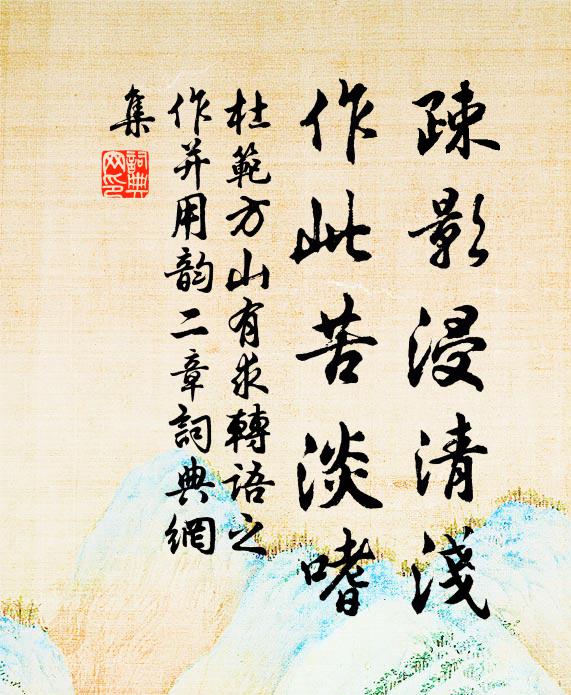 疎影浸清淺
作此苦淡嗜
杜範方山有求轉語之
作并用韵二章詞典網
集
詞典
网印